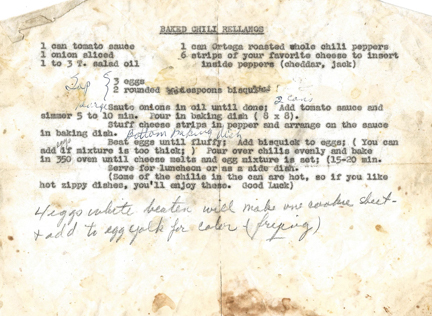 BAKED CHILI RELLANOS
1 can tomato sauce 1 can Ortega roasted whole chili peppers
1 onion sliced 6 strips of your favorite cheese to insert
1 to 3 T. salad oil inside peppers (cheddar, jack)
3 eggs
2 rounded
2 cans
Saute onions in oil until done; Add tomato sauce and
simmer 5 to 10 min. Pour in baking dish ( 8 x 8).
Stuff cheese strips in pepper and arrange on the sauce
in baking dish. Bottom baking dish
Beat eggs until fluffy; Add bisquick to eggs; ( You can
add if mixture is too thick; ) Pour over chilis evenly and bake
in 350 oven until cheese melts and egg mixture is set; (15-20 min.
Serve for luncheon or as a side dish.
(Some of the chilis in the can are hot, so if you like
hot zippy dishes, you'll enjoy these. Good Luck)
4 eggs white beaten will make one cookie sheet-
+ add to egg yolk for color (frying)